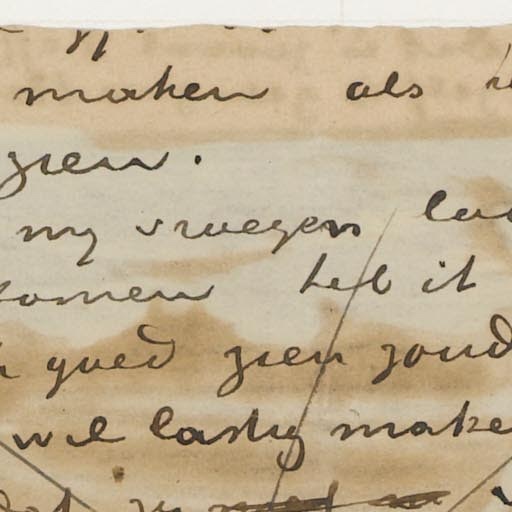 maken als
zien.
my vroegen la
komen heb ik
goed zien zoud
wel lastig make